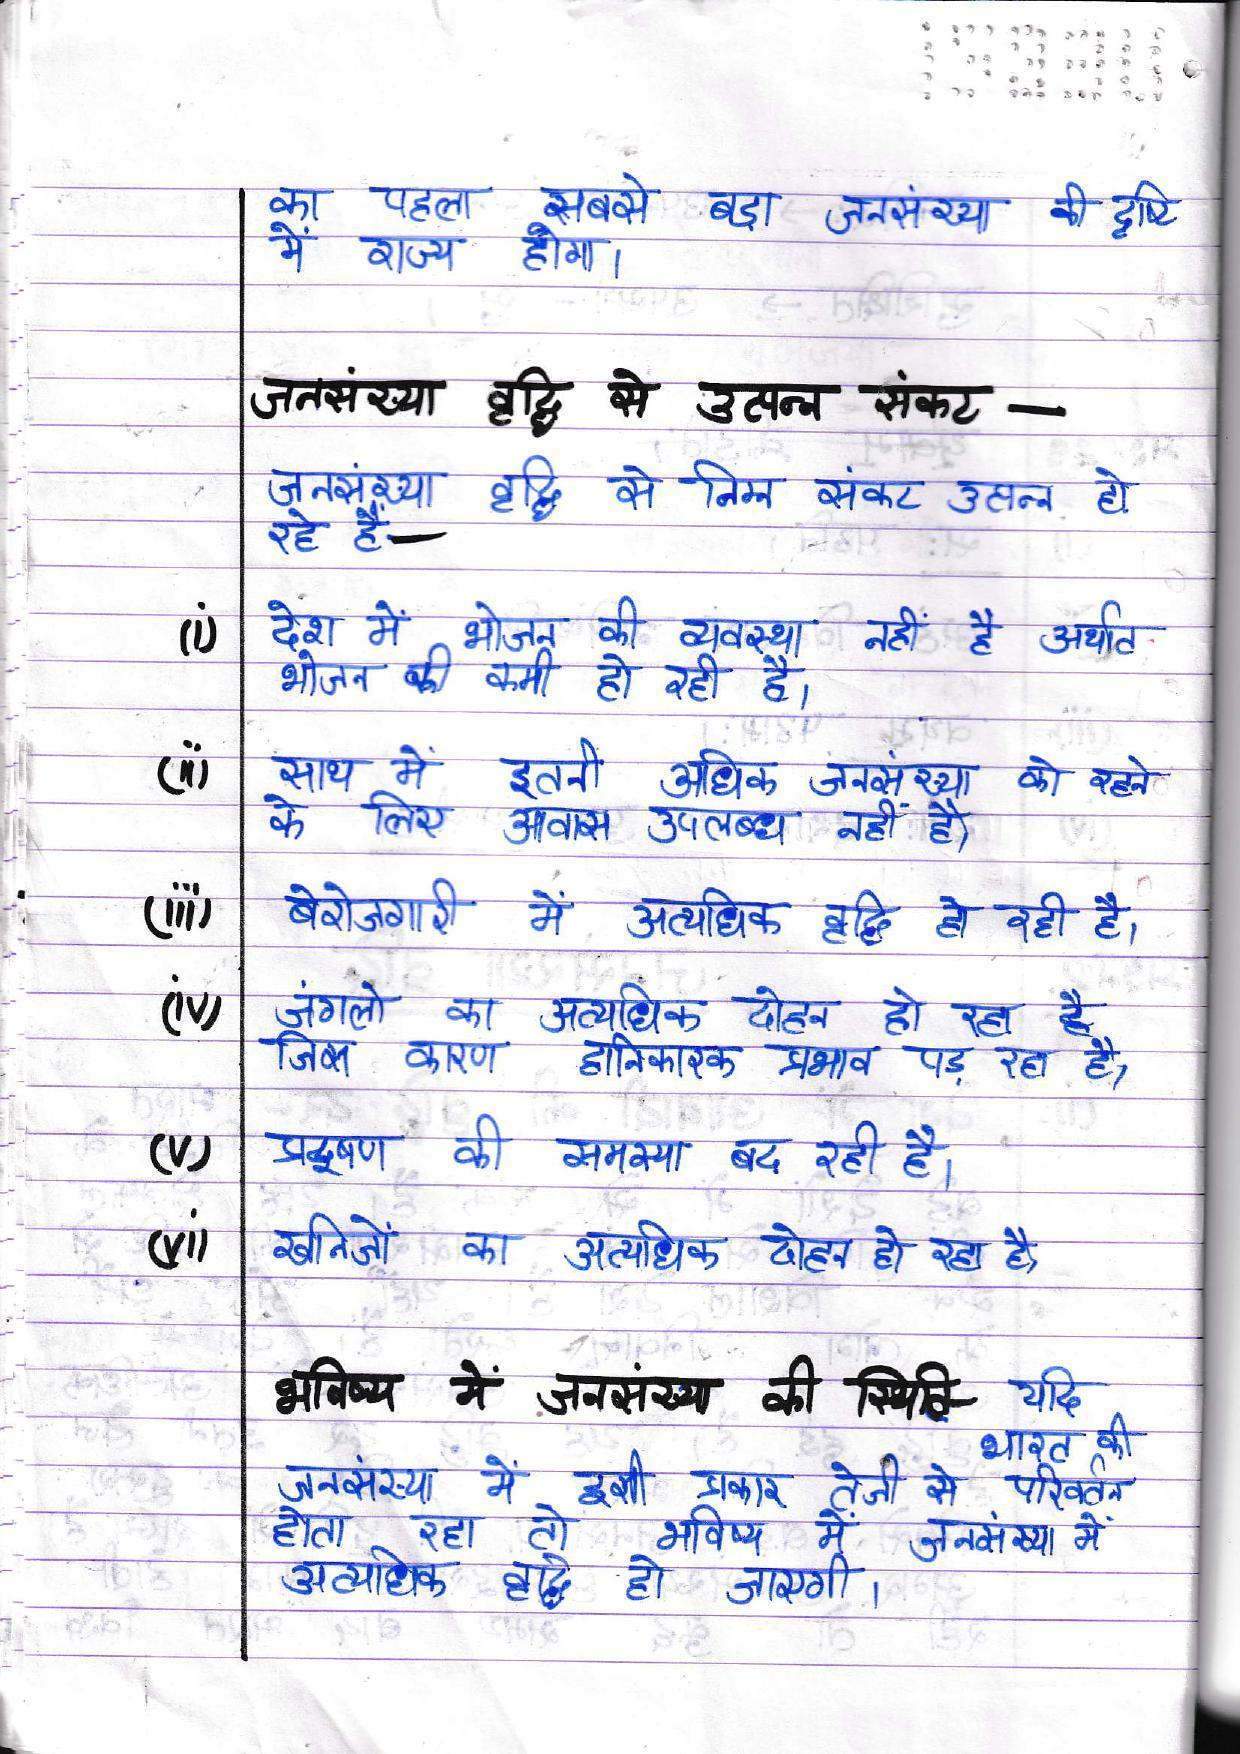 का पहला सबसे बड़ा जनसंख्या की दृष्टि
में राज्य होगा।
जनसंख्या वृद्धि से उत्पन्न संकट —
जनसंख्या वृद्धि से निम्न संकट उत्पन्न हो
रहे हैं—
(i) देश में भोजन की व्यवस्था नहीं है अर्थात
भोजन की कमी हो रही है।
(ii) साथ में इतनी अधिक जंनसंख्या को रहने
के लिए आवास उपलब्ध नहीं है,
(iii) बेरोजगारी में अत्यधिक वृद्धि हो रही है।
(iv) जंगलो का अत्यधिक दोहन हो रहा है
जिस कारण हानिकारक प्रभाव पड़ रहा है,
(v) प्रदूषण की समस्या बढ रही है।
(vi) खनिजों का अत्यधिक दोहन हो रहा है,
भविष्य में जनसंख्या की स्थिति- यदि
भारत की
जनसंख्या में इसी प्रकार तेजी से परिवर्तन
होता रहा तो भविष्य में जनसंख्या में
अत्यधिक वृद्धि हो जाएगी।